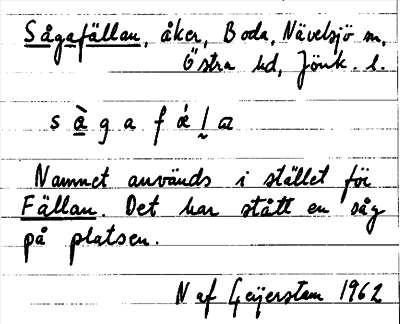 Sågafällan, åker, Boda, Nävelsjö sn,
Östra hd, Jönk. l.
s à̱ g a f ǽ l̰ ɷ
Namnet används i stället för
Fällan. Det har stått en såg
på platsen.
N af Geijerstam 1962